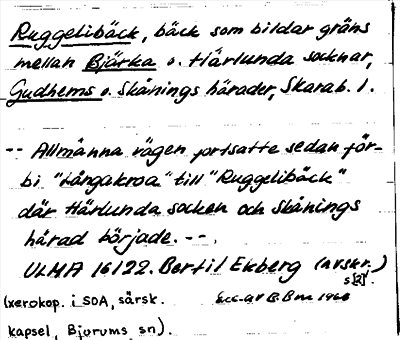 Ruggelibäck, bäck som bildar gräns
mellan Bjärka o. Härlunda socknar,
Gudhems o. Skånings härader, Skarab. l.
-- Allmänna vägen fortsatte sedan för-
bi "Långakroa" till "Ruggelibäck"
där Härlunda socken och Skånings
härad började. --.
ULMA 16122. Bertil Ekberg (avskr.)
s [2].
(xerokop. i SOA, särsk.
Exc. av B. Bm 1968
kapsel, Bjurums sn).